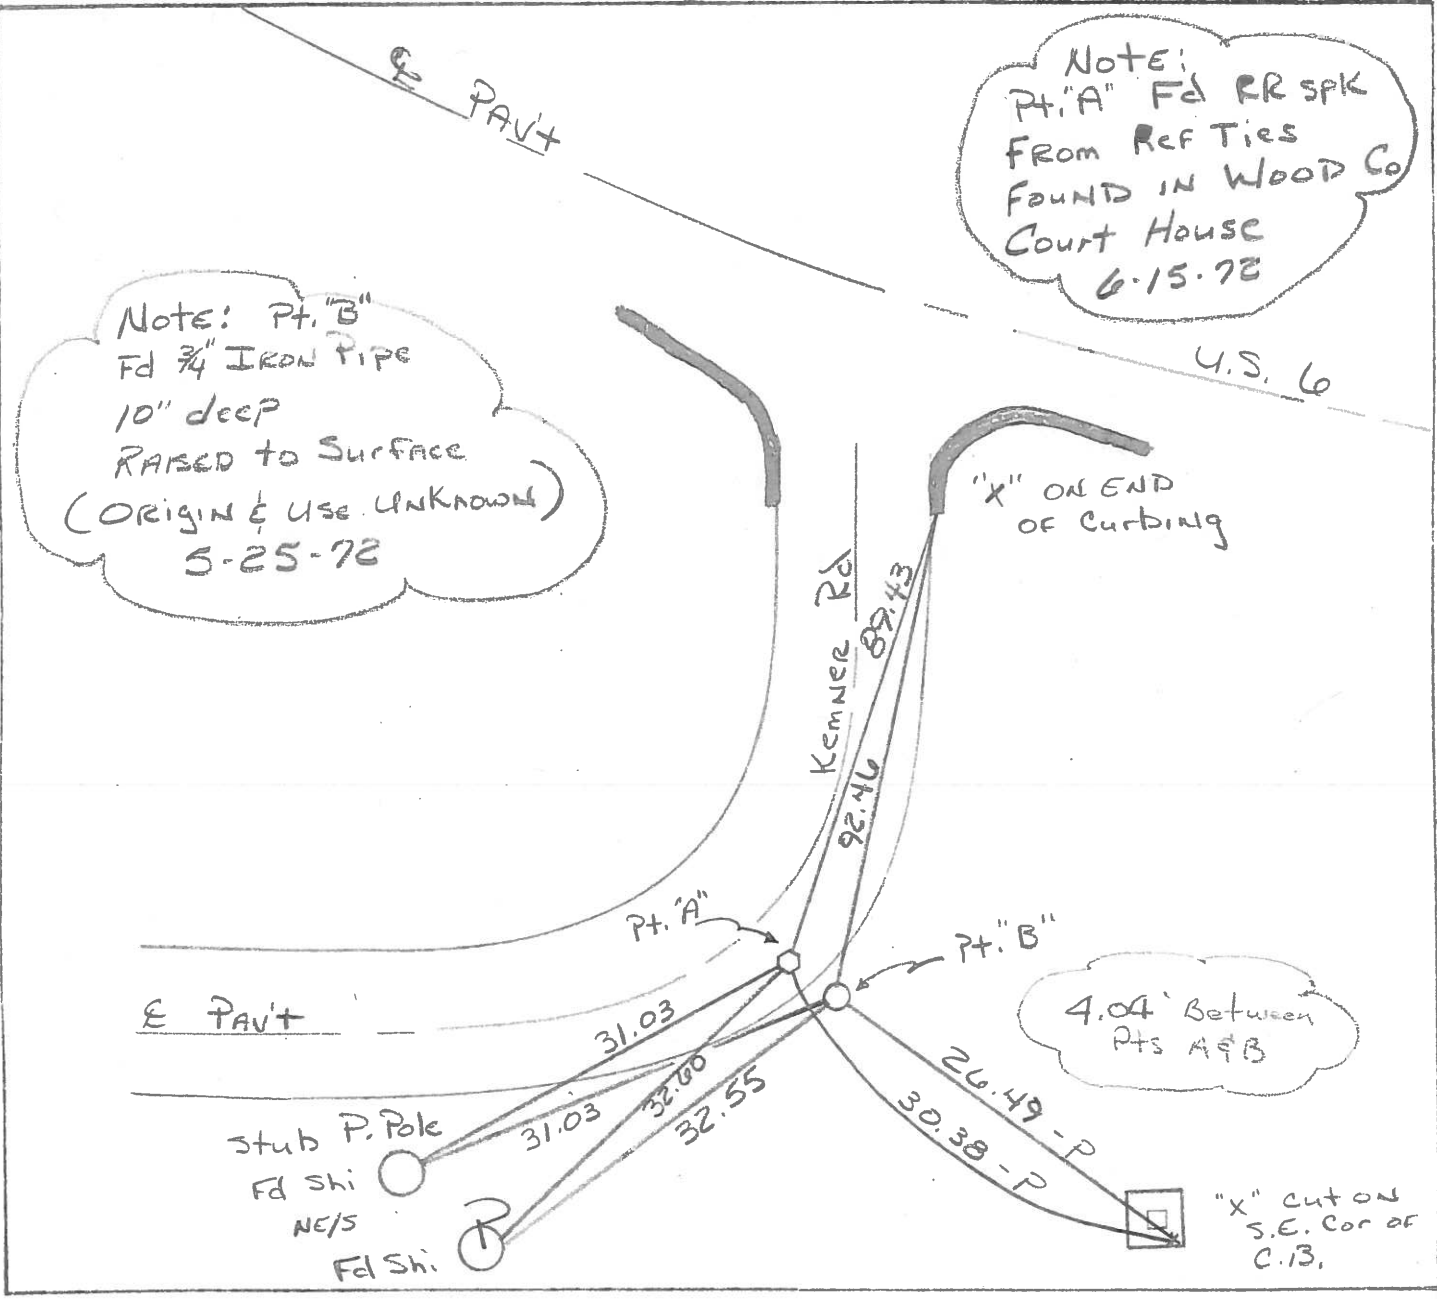 ℄ PAV't
NOTE:
Pt. "A" Fd RR SPK
FROM REF TIES
FOUND IN WOOD Co
Court House
6-15-72
U.S. 6
NOTE: Pt. "B"
Fd 3/4" IRON PIPE
10" deep
RAISED to SURFACE
(ORIGIN & USE UNKNOWN)
5-25-72
"X" ON END
OF Curbing
Kemner Rd
87.43
92.46
Pt. "A"
Pt. "B"
℄ PAV't
31.03
31.03
32.60
32.55
4.04' Between
Pts A & B
26.49 - P
30.38 - P
Stub P. Pole
Fd Shi
NE/S
P
Fd Shi
"X" cut ON
S.E. Cor OF
C.B.